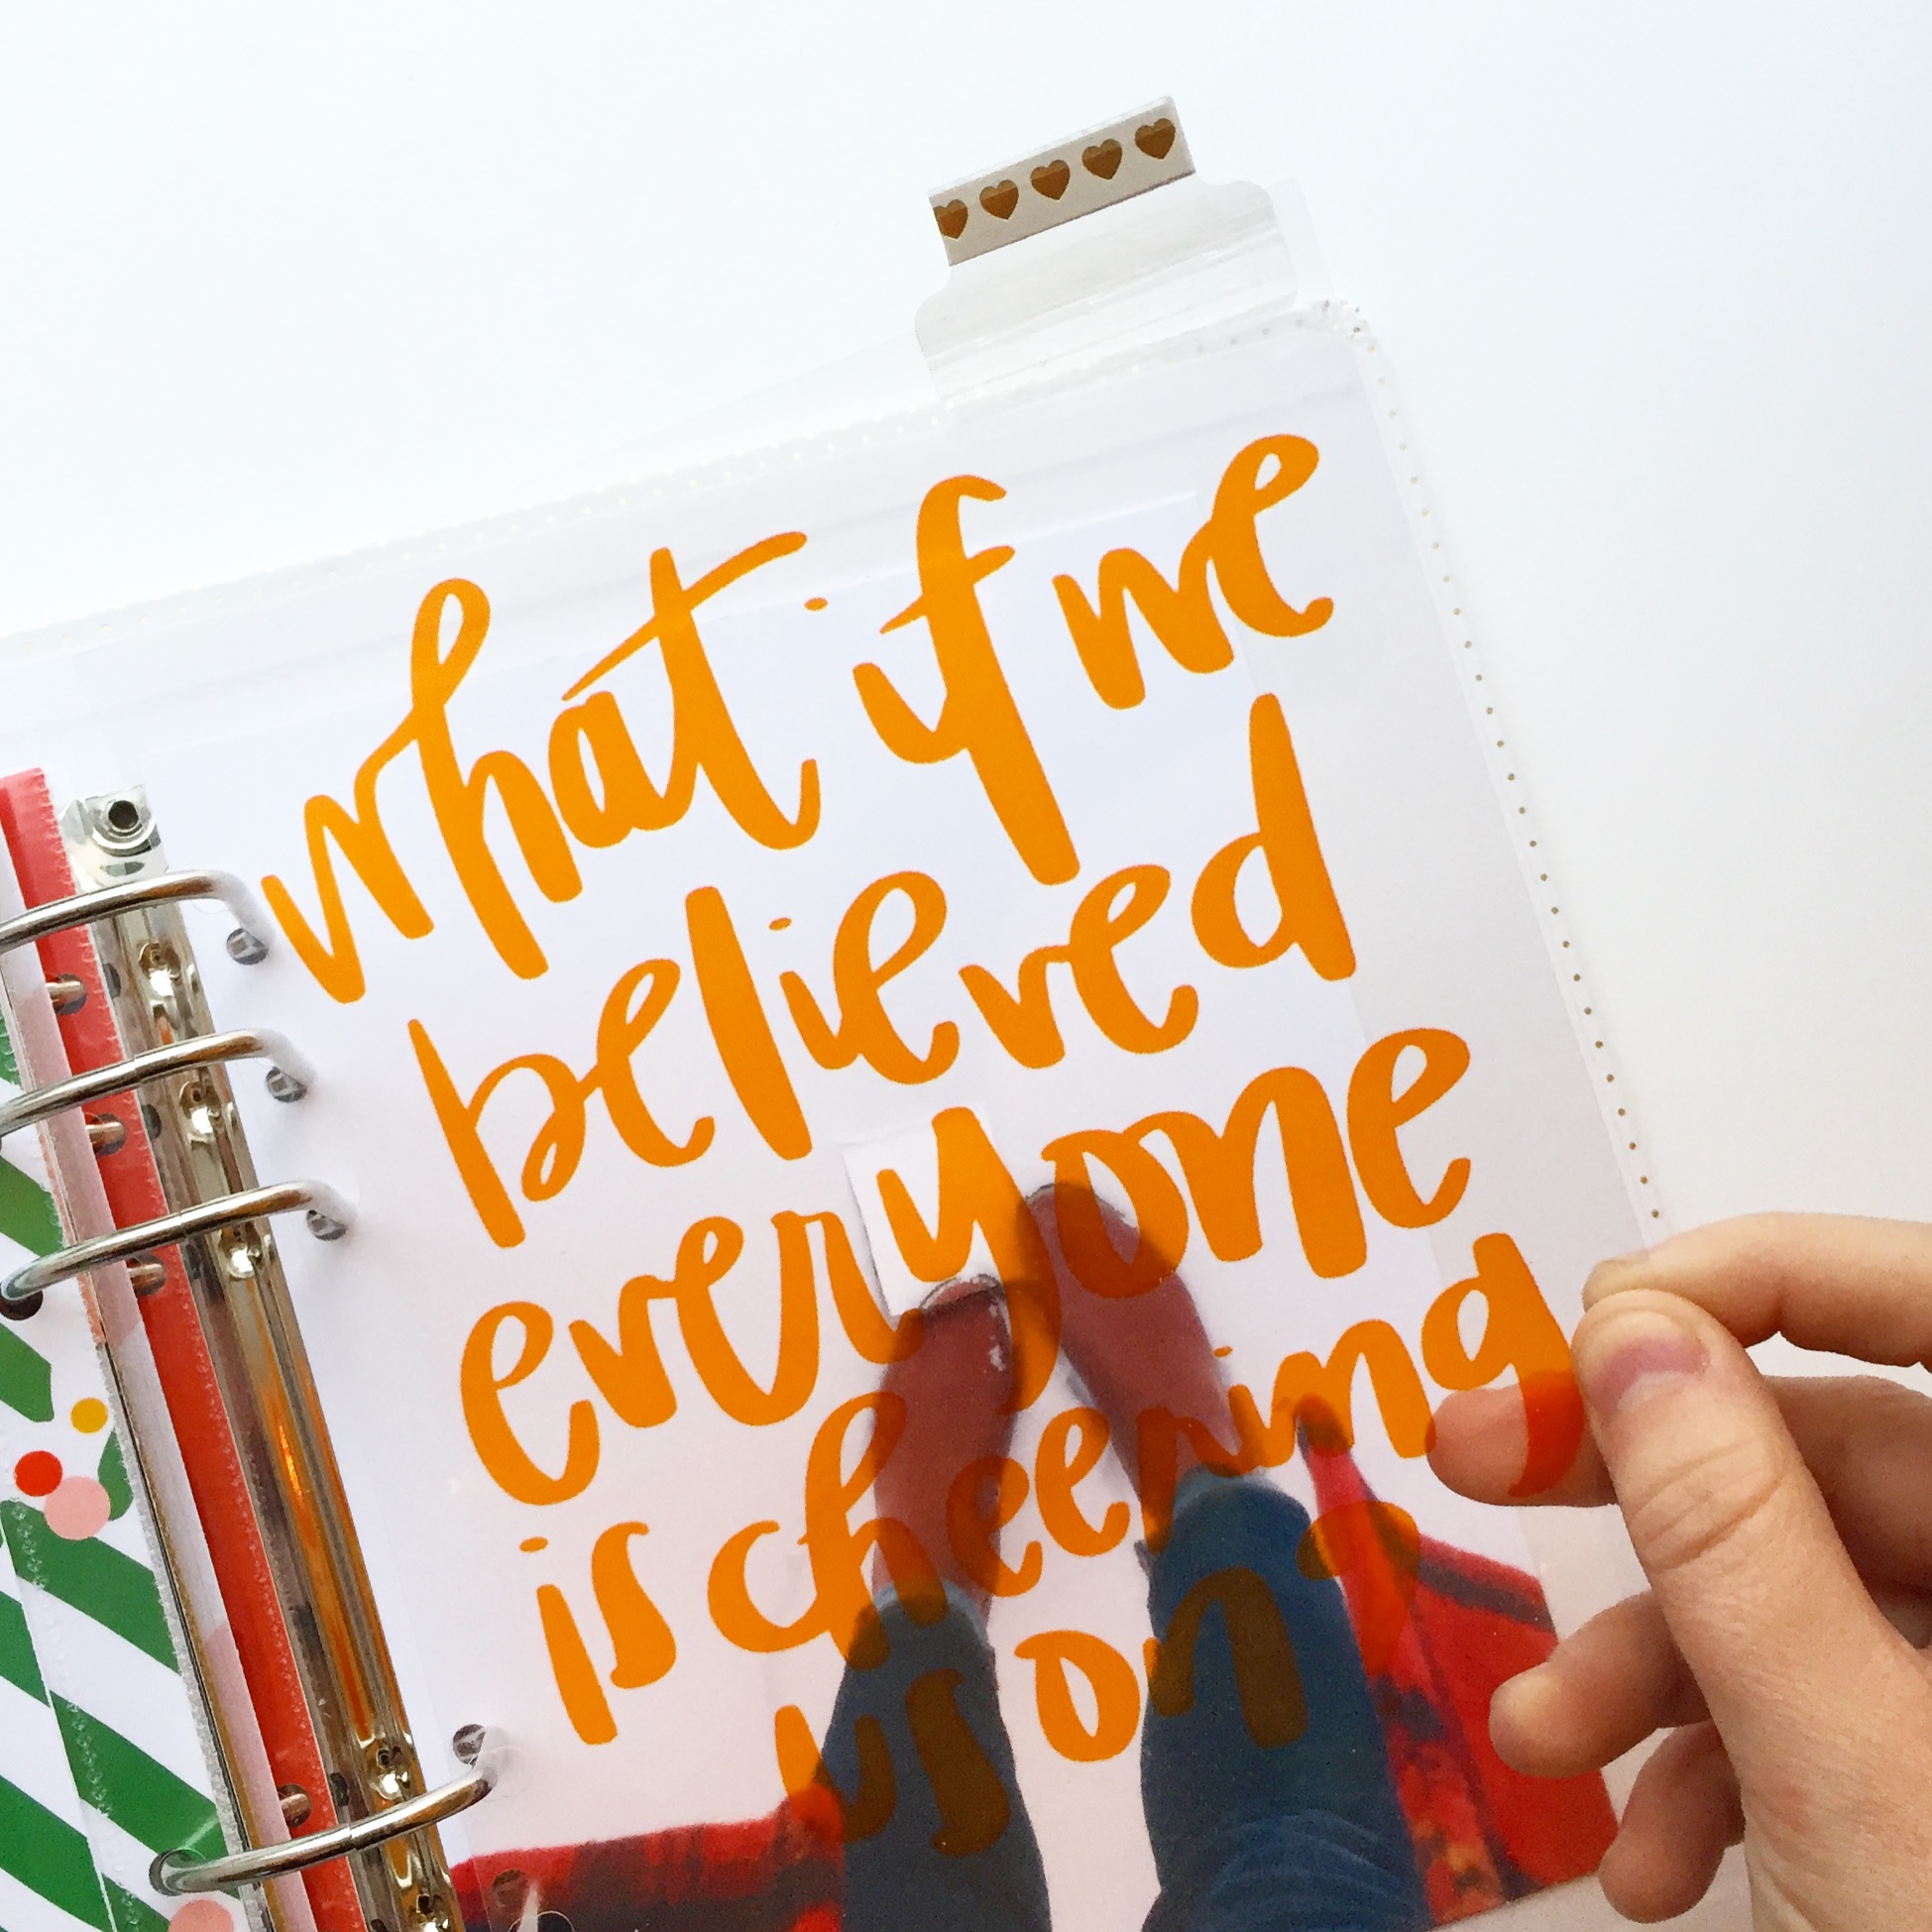 what if we
believed
everyone
is cheering
us on?